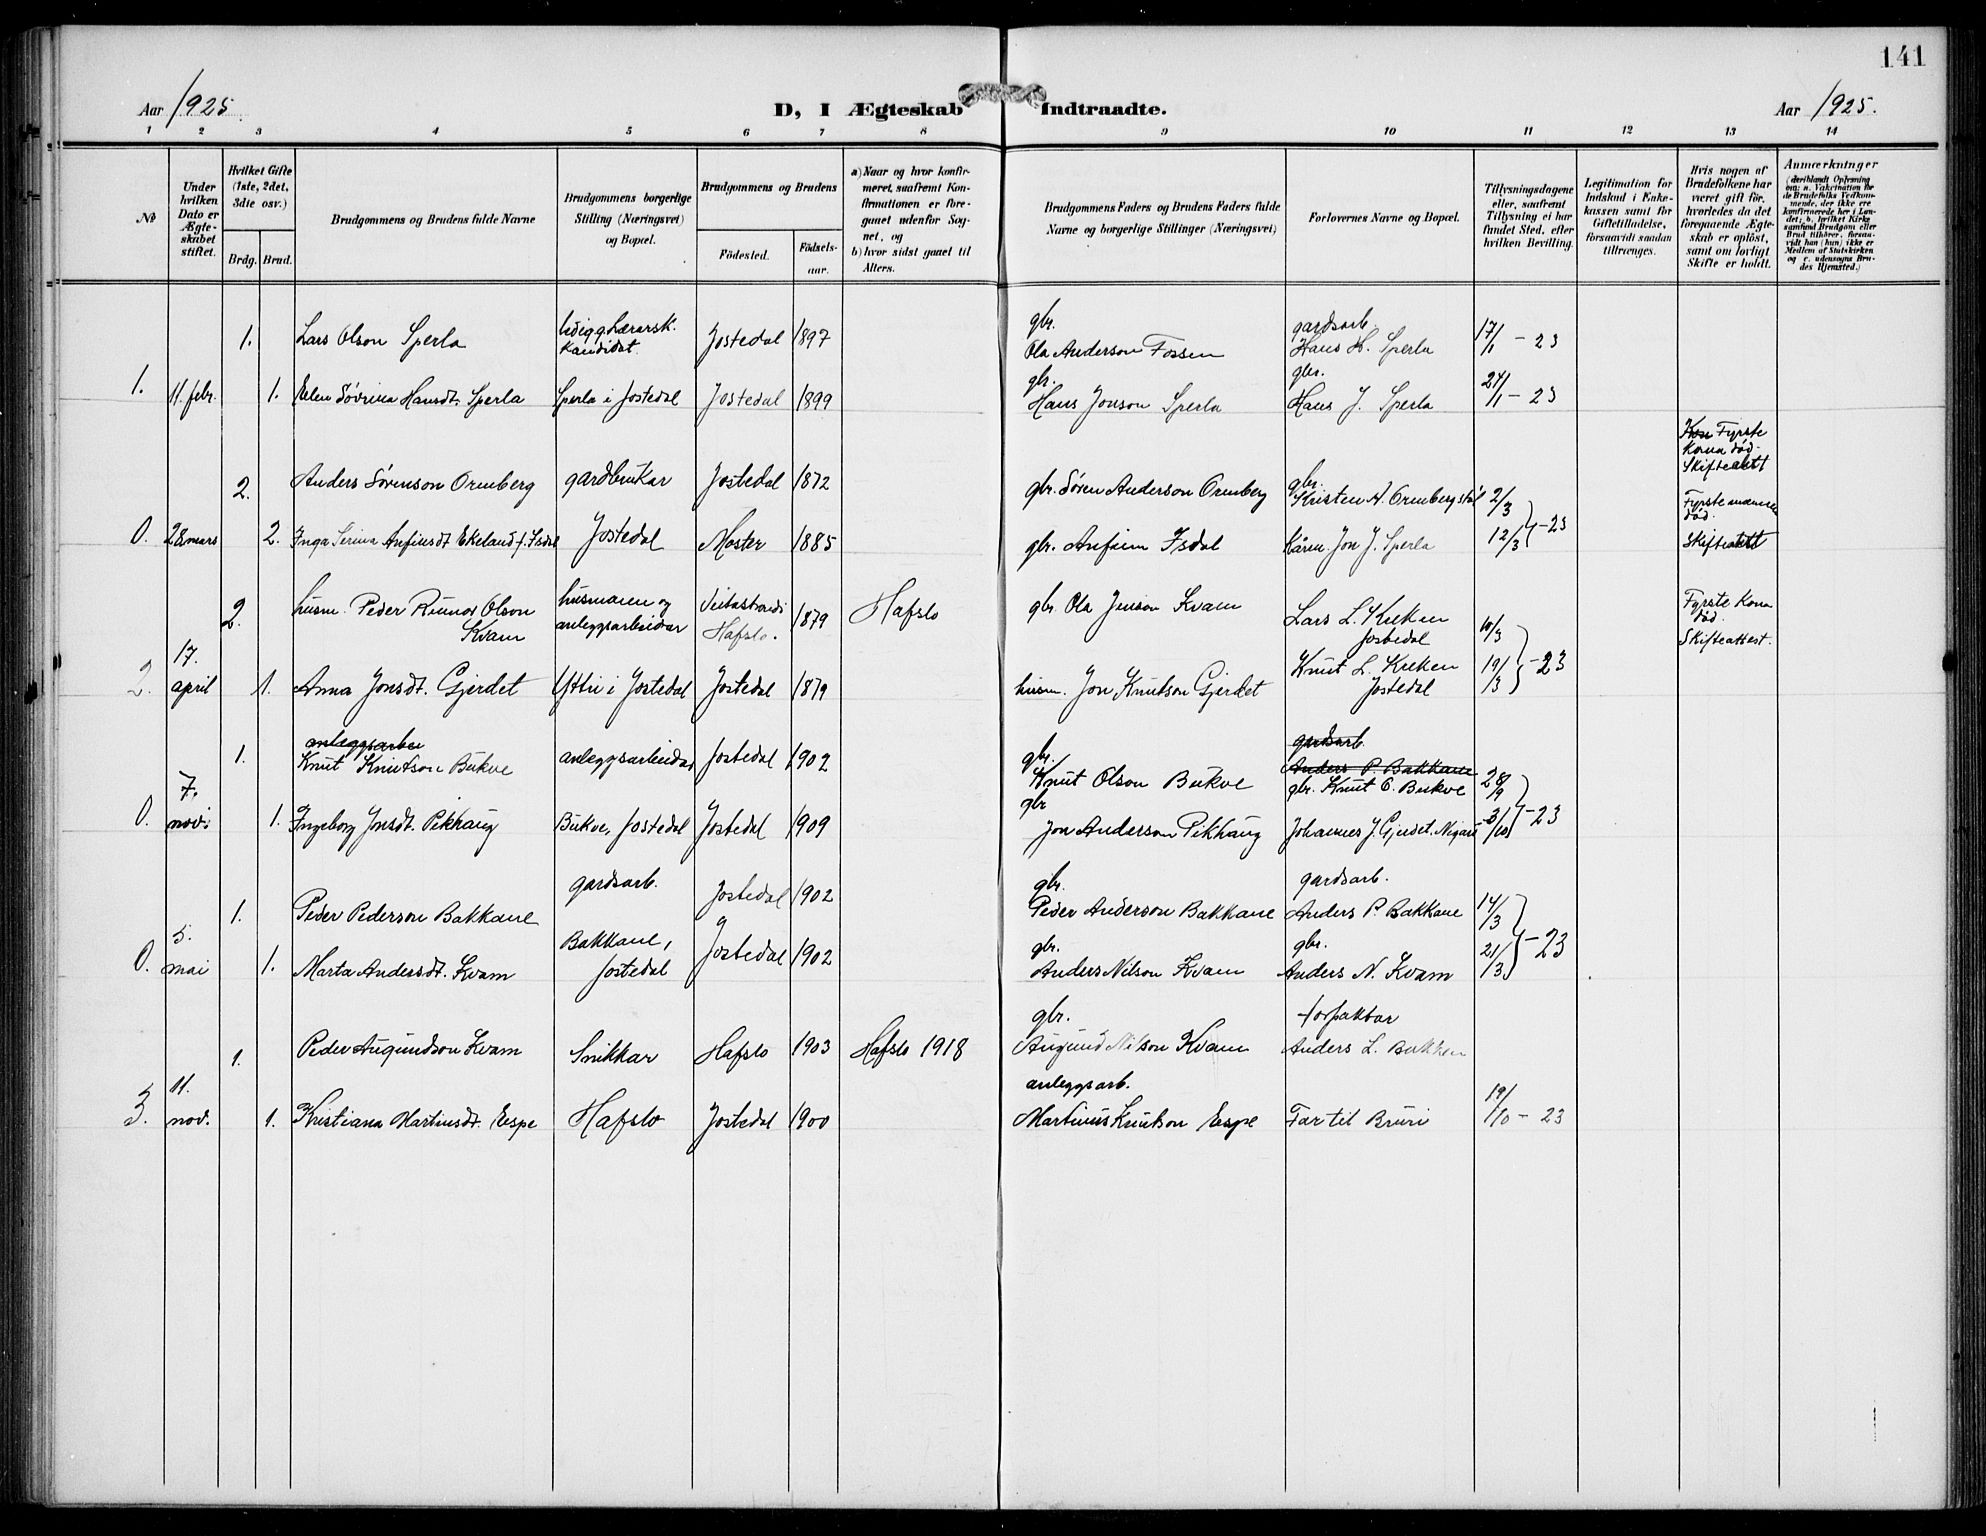 141
Aar 1925.
D, I Ægteskab Indtraadte.
Aar 1925.
1 2 3 4 5 6 7 8 9 10 11 12 13 14
No
Under hvilken Dato er Ægteskabet stiftet.
Hvilket Gifte (1ste, 2det, 3die osv.)
Brdg. Brud.
Brudgommens og Brudens fulde Navne
Brudgommens borgerlige Stilling (Næringsvei) og Bopæl.
Brudgommens og Brudens
Födested.
Födsels-aar.
a) Naar og hvor konfirmeret, saafremt Konfirmationen er foregaaet udenfor Sognet, og
b) hvor sidst gaaet til Alters.
Brudgommens Faders og Brudens Faders fulde Navne og borgerlige Stillinger (Næringsvei)
Forlovernes Navne og Bopæl.
Tillysningsdagene eller, saafremt Tillysning ei har fundet Sted, efter hvilken Bevilling.
Legitimation for Indskud i Enkekassen samt for Giftetilladelse, forsaavidt saadan tiltrænges.
Hvis nogen af Brudefolkene har været gift før, hvorledes da det foregaaende Ægteskab er opløst, samt om lovligt Skifte er holdt.
Anmærkninger
(deriblandt Oplysning om: a. Vakcination for de Brudefolks Vedkommende, der ikke ere konfirmerede her i Landet; b. hvilket Kirkesamfund Brudgom eller Brud tilhører, forsaavidt han (hun) ikke er Medlem af Statskirken og c. udensogns Brudes Hjemsted.)
1. Lars Olson Sperla Jostedal 1897 gbr. Ola Anderson Fossen gardsarb. Hans H. Sperla 17/1 - 23
kandidat
1. 11. febr. 1. Elen Søvrina Hansdt. Sperla Sperla i Jostedal Jostedal 1899 gbr. Hans Jonson Sperla gbr. Hans J. Sperla 24/1 - 23
2. Anders Sørenson Ormberg gardbrukar Jostedal 1872 gbr. Søren Anderson Ormberg gbr. Kristen A. Ormbergstøl 2/3 Fyrste Kona død. Skifteattest
0. 28 mars 2. Inga Serina Anfinsdt Ekeland f. Isdal Jostedal Moster 1885 gbr. Anfinn Isdal Jon J. Sperla 12/3 - 23 Fyrste mannen død. Skifteattest
2. husm. Peder Olson Kvam husmann og anleggsarbeidar Veitastrond i Hafslo. 1879 Hafslo gbr. Ola Jenson Kvam Lars L. Kreken Jostedal 10/3 Fyrste Kona død. Skifteattest.
2. 17. april 1. Anna Jonsdt. Gjerdet Yttri i Jostedal Jostedal 1879 husm. Jon Knutson Gjerdet Knut L. Kreken Jostedal 19/3 - 23
anleggsarbei
1. Knut Knutson Bukve anleggsarbeidar Jostedal 1902 gbr. Knut Olson Bukve gardsarb. Anders P. Bakkane gbr. Knut O. Bukve 28/9
0. 7. nov. 1. Ingeborg Jonsdt. Pikhaug Bukve, Jostedal Jostedal 1909 gbr Jon Anderson Pikhaug Johannes J. Gjerdet, Nigard 3/10 - 23
1. Peder Pederson Bakkane gardsarb. Jostedal 1902 gbr. Peder Anderson Bakkane gardsarb. Anders P. Bakkane 14/3
0. 5. mai 1. Marta Andersdt. Kvam Bakkane, Jostedal Jostedal 1902 gbr. Anders Nilson Kvam gbr. Anders N. Kvam 21/3 - 23
1. Peder Augundson Kvam Snikkar Hafslo 1903 Hafslo 1918 gbr. Augund Nilson Kvam forpaktar Anders L. Bakken
3. 11. nov. 1. Kristiana Martinsdt. Espe Hafslo Jostedal 1900 anleggsarb. Martinus Knutson Espe Far til Bruri 19/10 - 23